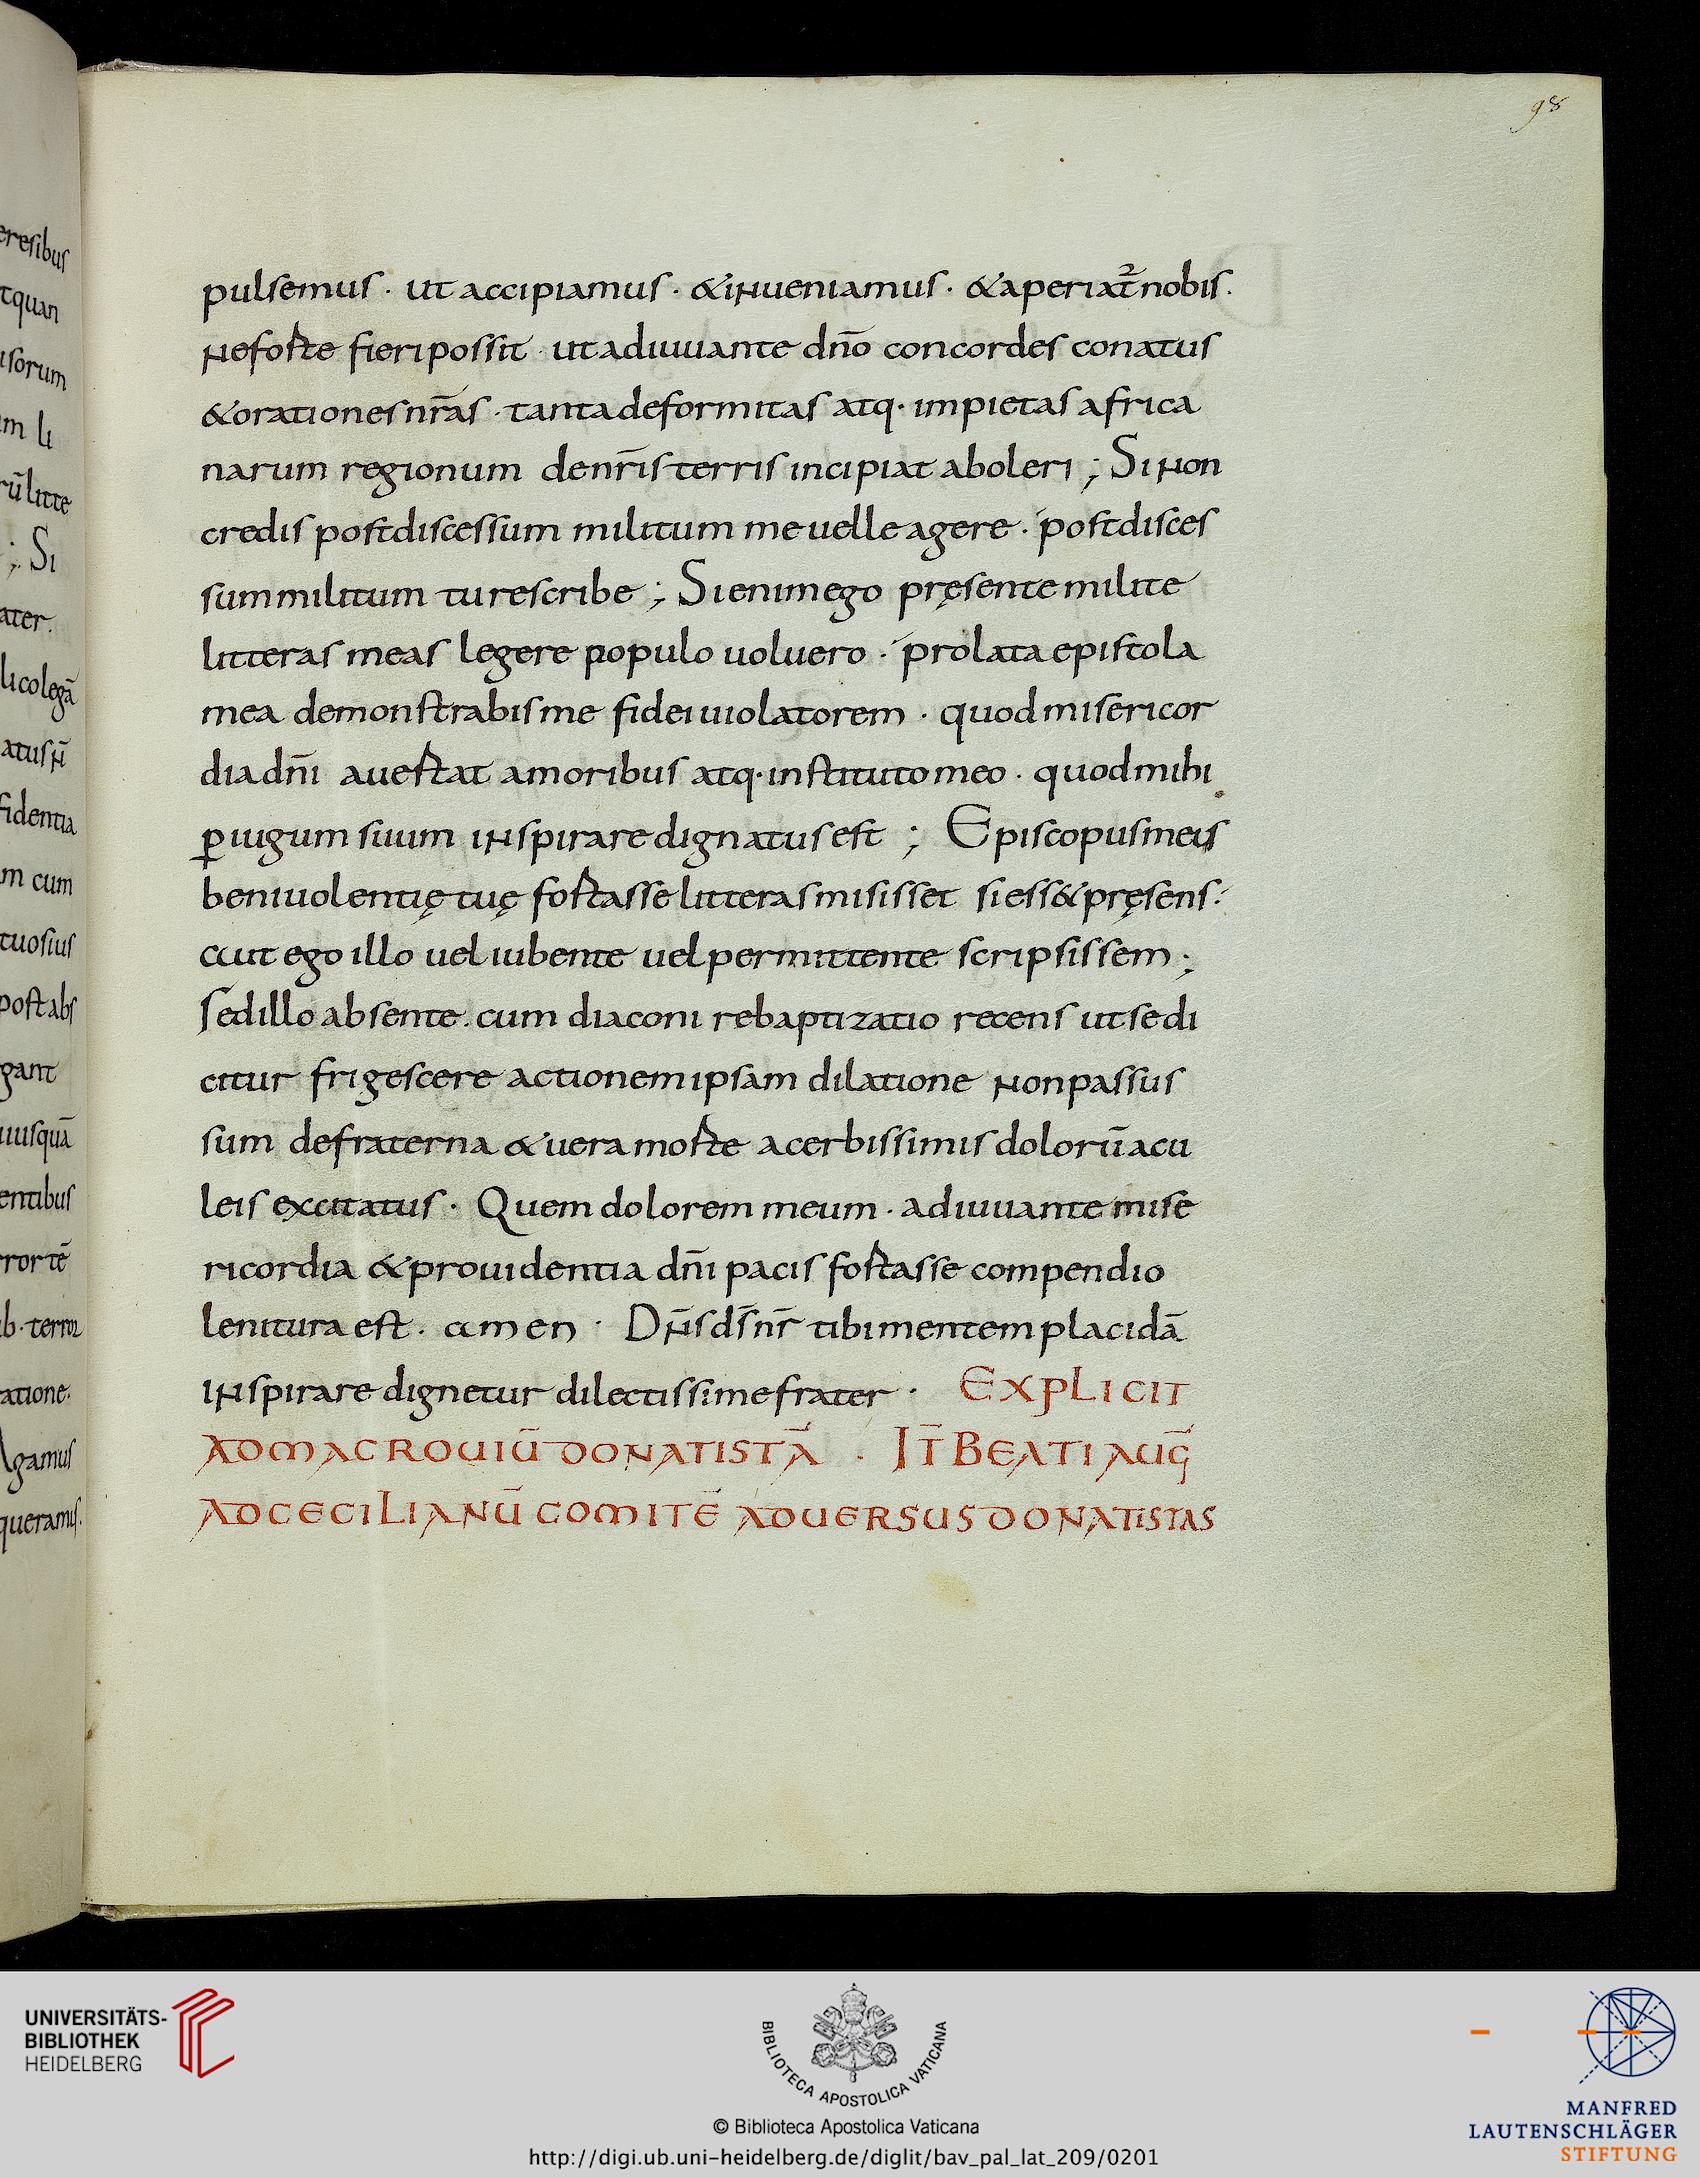 98
eresibus
tquan
usorum
m li
rū litte
; Si
ater.
li colegā
atus n̄
fidentia
m cum
tuosius
post abs
gant
uiusquā
entibus
rror tē
b · terror
atione.
Agamus
queramus.
pulsemus · ut accipiamus · & inueniamus · & aperiat̄ nobis.
ne forte fieri possit · ut adiuuante dn̄o concordes conatus
& orationes nr̄as · tanta deformitas atq· impietas africa
narum regionum de nr̄is terris incipiat aboleri ; Si non
credis post discessum militum me uelle agere · post disces
sum militum tu rescribe ; Si enim ego pręsente milite
litteras meas legere populo uoluero · prolata epistola
mea demonstrabis me fidei uiolatorem · quod misericor
dia dn̄i auertat a moribus atq· instituto meo · quod mihi
p̱ iugum suum inspirare dignatus est ; Episcopus meus
beniuolentię tuę fortasse litteras misisset si ess& pręsens ·
aut ego illo uel iubente uel permittente scripsissem ;
Sed illo absente · cum diaconi rebaptizatio recens ut se di
citur frigescere actionem ipsam dilatione non passus
sum de fraterna & uera morte acerbissimis dolorū acu
leis excitatus · Quem dolorem meum · adiuuante mise
ricordia & prouidentia dn̄i pacis fortasse compendio
lenitura est · amen · Dn̄s ds̄ nr̄ tibi mentem placidā
inspirare dignetur dilectissime frater · EXPLICIT
AD MACROUIŪ DONATISTĀ · IT̄ BEATI AUḠ
AD CECILIANŪ COMITĒ ADUERSUS DONATISTAS
UNIVERSITÄTS-
BIBLIOTHEK
HEIDELBERG
BIBLIOTECA APOSTOLICA VATICANA
© Biblioteca Apostolica Vaticana
http://digi.ub.uni-heidelberg.de/diglit/bav_pal_lat_209/0201
MANFRED
LAUTENSCHLÄGER
STIFTUNG